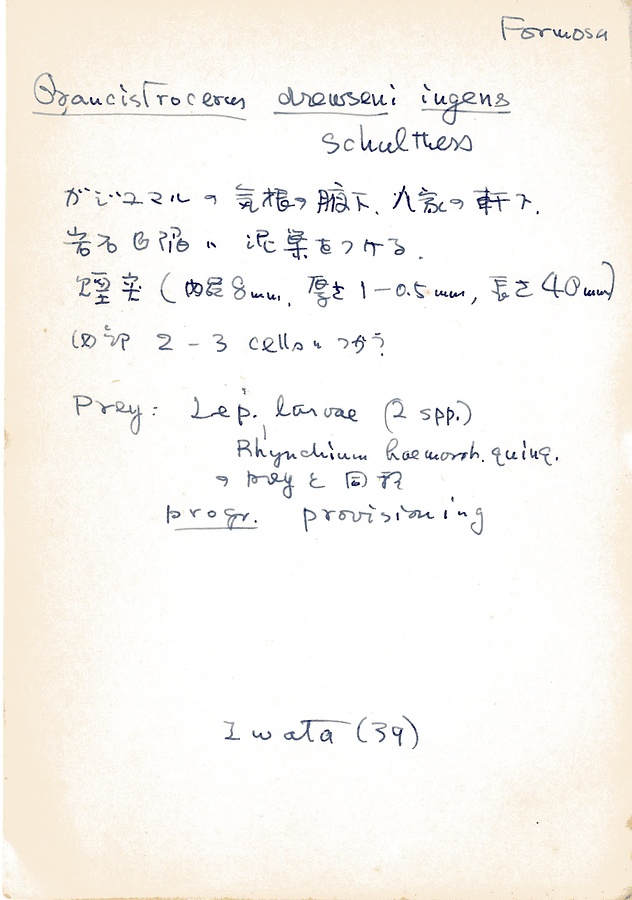 Formosa
Pseudancistrocerus drewseni ingens
Schulthess
ガジュマルの気根の腋下、人家の軒下、
岩石凹陥に泥巣をつける.
煙突(内径8mm, 厚さ1-0.5mm, 長さ40mm)
2-3 cellsにつき1
Prey: Lep. larvae (2 spp.)
Rhynchium haemorrh. quinq.
のpreyと同種
progr. provisioning
Iwata (39)